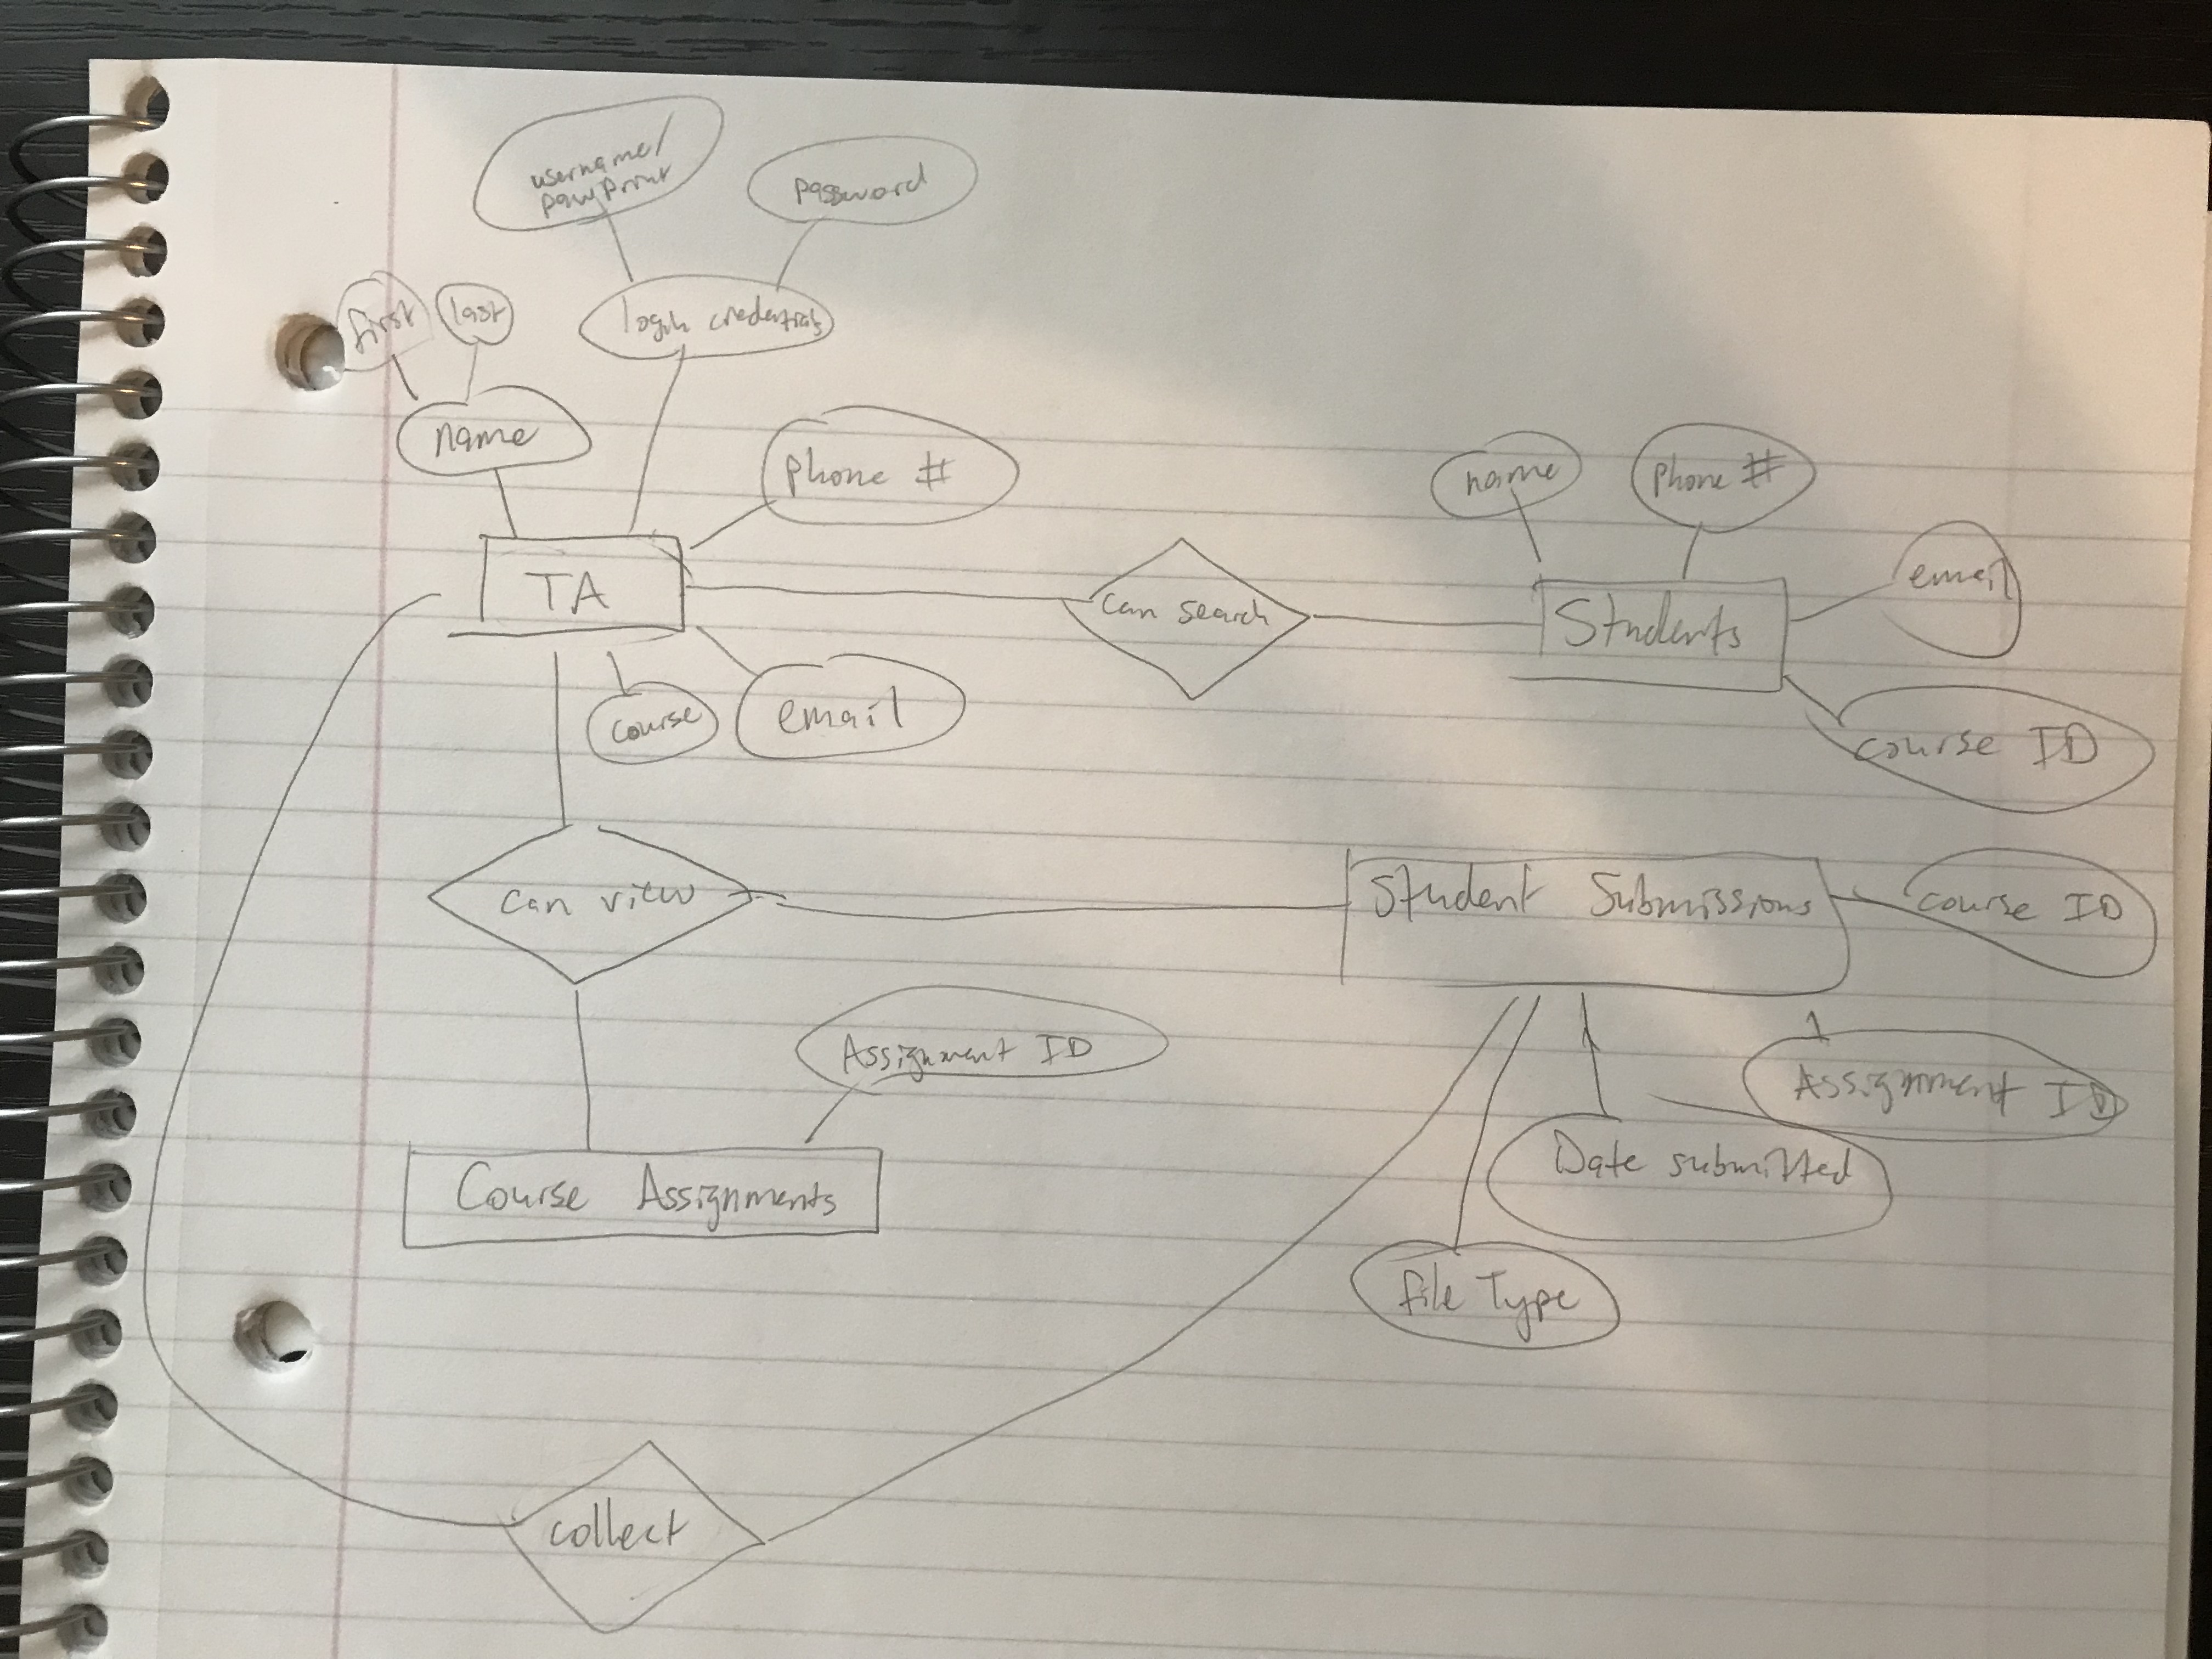 username/
pawprint
password
first
last
login credentials
name
phone #
name
phone #
email
TA
can search
Students
course
email
course ID
can view
Student Submissions
course ID
Assignment ID
Assignment ID
Date submitted
Course Assignments
file Type
collect